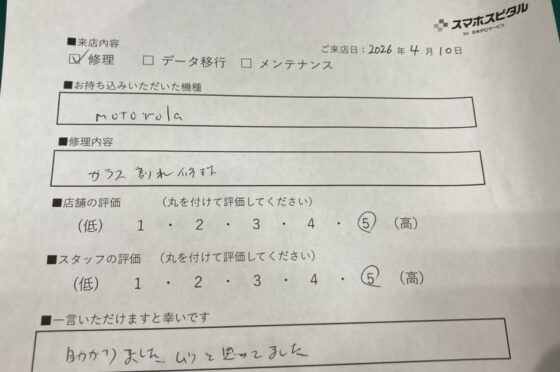 スマホスピタル
by 日本PCサービス
■来店内容
ご来店日：2026年 4月 10日
☑ 修理 □ データ移行 □ メンテナンス
■お持ち込みいただいた機種
motorola
■修理内容
ガラス割れ修理
■店舗の評価 （丸を付けて評価してください）
（低） 1 ・ 2 ・ 3 ・ 4 ・ ⑤ （高）
■スタッフの評価 （丸を付けて評価してください）
（低） 1 ・ 2 ・ 3 ・ 4 ・ ⑤ （高）
■一言いただけますと幸いです
助かりました、ムリと思ってました